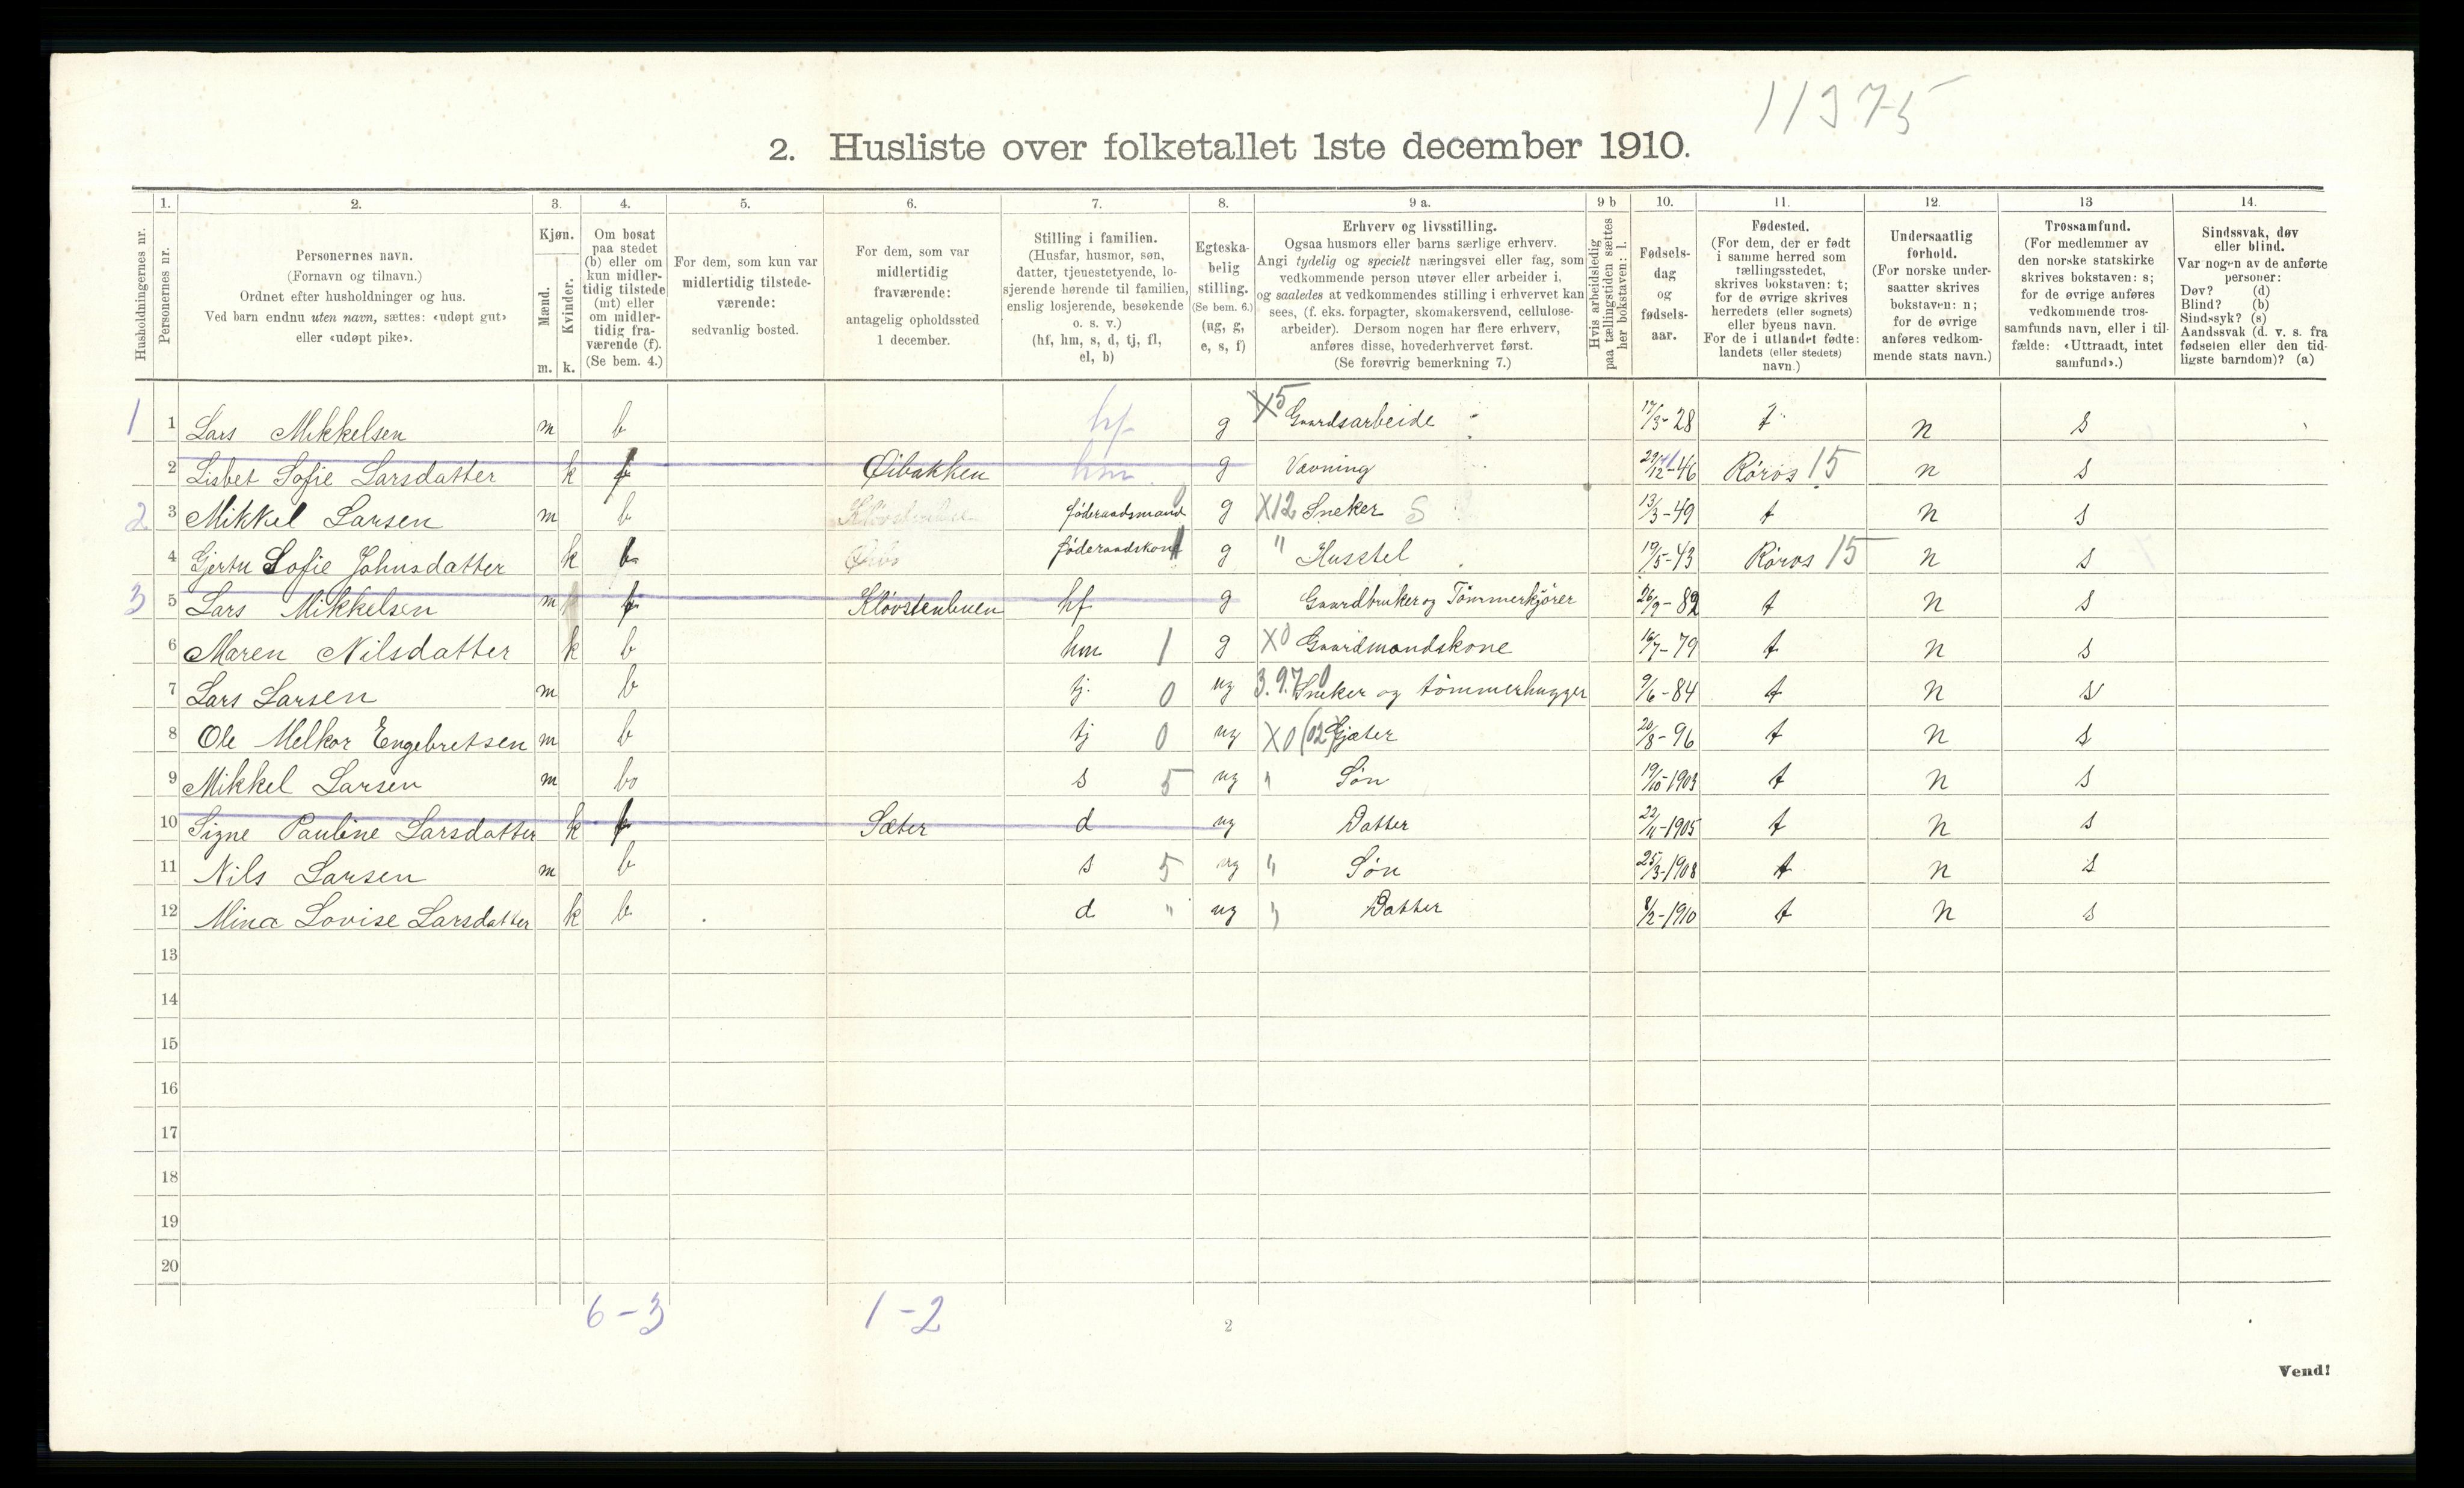 11375
2. Husliste over folketallet 1ste december 1910.
Husholdningernes nr.
1. Personernes nr.
2. Personernes navn. (Fornavn og tilnavn.) Ordnet efter husholdninger og hus. Ved barn endnu uten navn, sættes: «udøpt gut» eller «udøpt pike».
3. Kjøn. Mænd. m. Kvinder. k.
4. Om bosat paa stedet (b) eller om kun midlertidig tilstede (mt) eller om midlertidig fraværende (f). (Se bem. 4.)
5. For dem, som kun var midlertidig tilstedeværende: sedvanlig bosted.
6. For dem, som var midlertidig fraværende: antagelig opholdssted 1 december.
7. Stilling i familien. (Husfar, husmor, søn, datter, tjenestetyende, losjerende hørende til familien, enslig losjerende, besøkende o. s. v.) (hf, hm, s, d, tj, fl, el, b)
8. Egteskabelig stilling. (Se bem. 6.) (ug, g, e, s, f)
9 a. Erhverv og livsstilling. Ogsaa husmors eller barns særlige erhverv. Angi tydelig og specielt næringsvei eller fag, som vedkommende person utøver eller arbeider i, og saaledes at vedkommendes stilling i erhvervet kan sees, (f. eks. forpagter, skomakersvend, cellulosearbeider). Dersom nogen har flere erhverv, anføres disse, hovederhvervet først. (Se forøvrig bemerkning 7.)
9 b Hvis arbeidsledig paa tællingstiden sættes her bokstaven: l.
10. Fødselsdag og fødselsaar.
11. Fødested. (For dem, der er født i samme herred som tællingsstedet, skrives bokstaven: t; for de øvrige skrives herredets (eller sognets) eller byens navn. For de i utlandet fødte: landets (eller stedets) navn.)
12. Undersaatlig forhold. (For norske undersaatter skrives bokstaven: n; for de øvrige anføres vedkommende stats navn.)
13 Trossamfund. (For medlemmer av den norske statskirke skrives bokstaven: s; for de øvrige anføres vedkommende trossamfunds navn, eller i tilfælde: «Uttraadt, intet samfund».)
14. Sindssvak, døv eller blind. Var nogen av de anførte personer: Døv? (d) Blind? (b) Sindssyk? (s) Aandssvak (d. v. s. fra fødselen eller den tidligste barndom)? (a)
1 1 Lars Mikkelsen m b hf g X5 Gaardsarbeide 17/3-28 t n s
2 Lisbet Sofie Larsdatter k f Øibakken hm g Vævning 29/12-46 Røros 15 n s
2 3 Mikkel Larsen m b føderaadsmand 0 g X12 Sneker S 13/3-49 t n s
4 Gjertru Sofie Johnsdatter k b føderaadskone 1 g " Husstel 19/5-43 Røros 15 n s
3 5 Lars Mikkelsen m f Kløvstenbuen hf g Gaardbruker og Tømmerkjører 26/9-82 t n s
6 Maren Nilsdatter k b hm 1 g X0 Gaardmandskone 16/7-79 t n s
7 Lars Larsen m b tj. 0 ug 3.9.70 Sneker og tømmerhugger 9/6-84 t n s
8 Ole Melkor Engebretsen m b tj 0 ug X0 (02) Gjæter 20/8-96 t n s
9 Mikkel Larsen m bo s 5 ug " Søn 19/10-1903 t n s
10 Signe Pauline Larsdatter k f Sæter d ug Datter 22/11-1905 t n s
11 Nils Larsen m b s 5 ug " Søn 25/3-1908 t n s
12 Mina Lovise Larsdatter k b d " ug " Datter 8/2-1910 t n s
13
14
15
16
17
18
19
20
6-3 1-2
2
Vend!